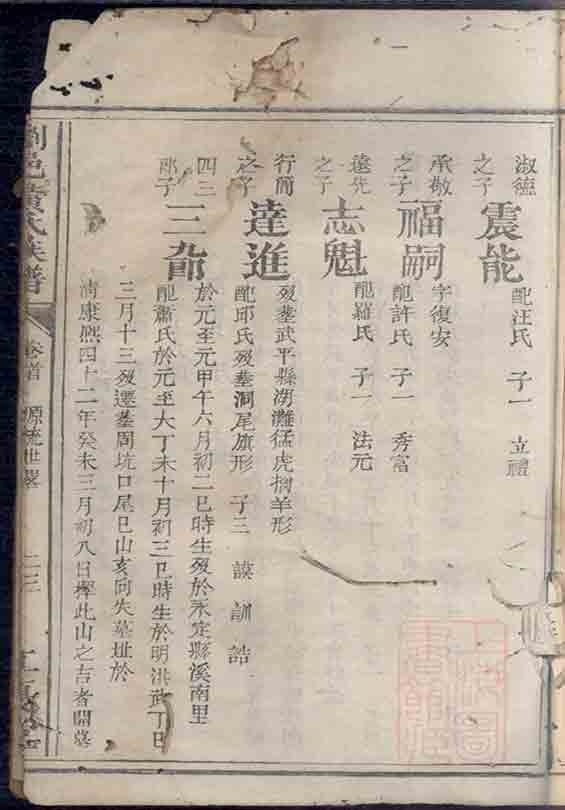 淑德之子
震能
配汪氏 子一 立禮
承敬之子
福嗣
字復安
配許氏 子一 秀富
遠先之子
志魁
配羅氏 子一 法元
行簡之子
達進
歿墓武平縣湖灘猛虎擒羊形
配邱氏歿墓洞尾旗形 子三 謨 訓 誥
四三郎子
三郎
於元至元甲午六月初二巳時生歿於永定縣溪南里
配蕭氏於元至大丁未十月初三巳時生於明洪武丁巳
三月十三歿遷墓周坑口尾巳山亥向失墓址於
清康熙四十二年癸未三月初八日擇此山之吉者開墓
瀏邑黃氏族譜
卷首 源流世畧